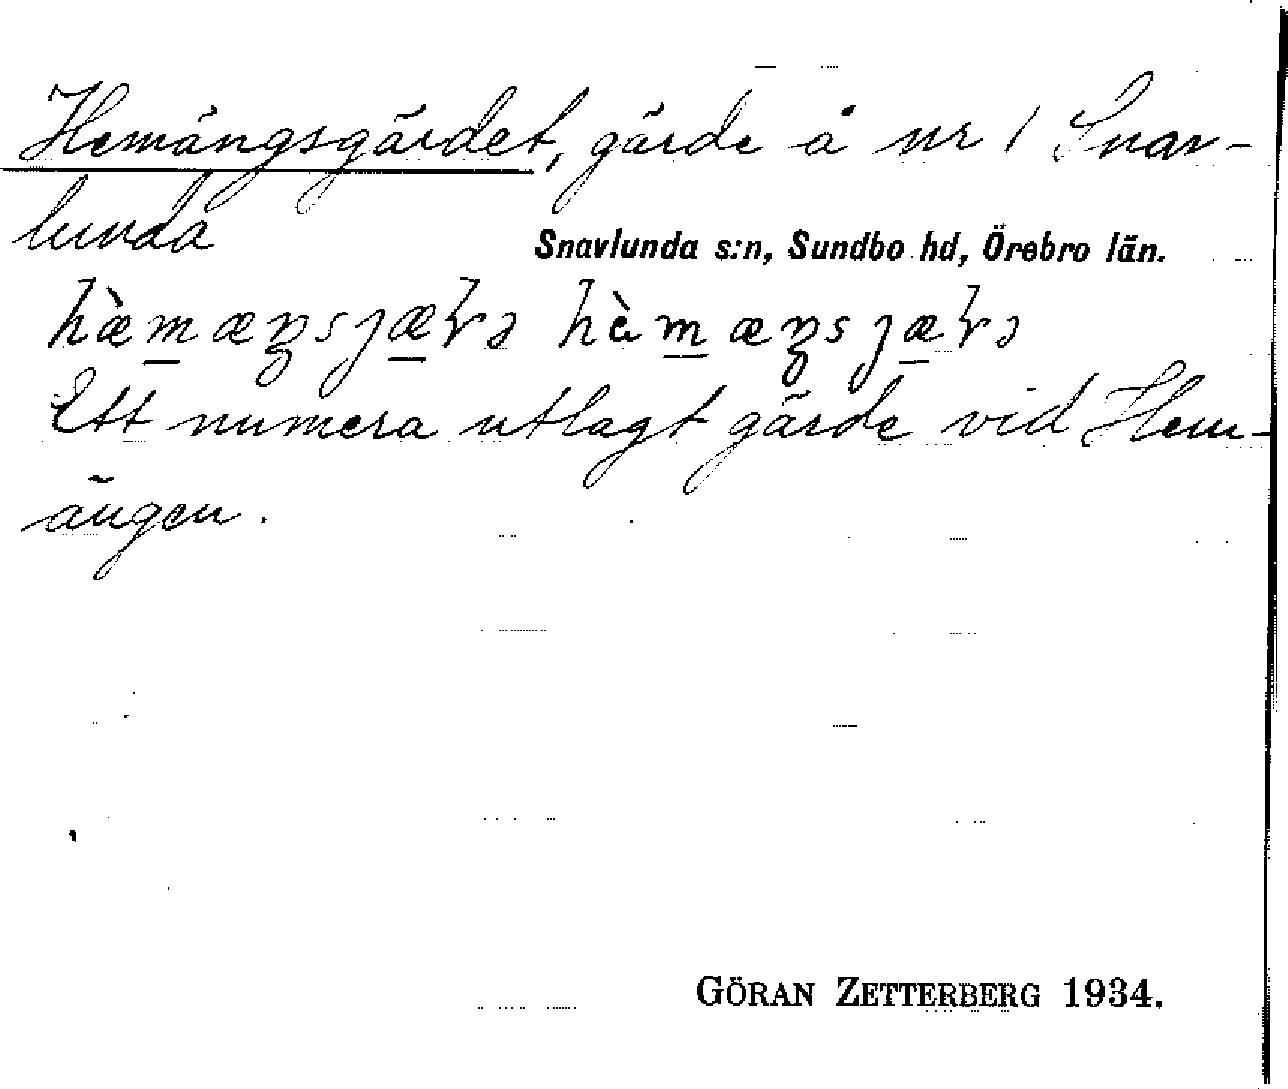 Hemängsgärdet, gärde å nr 1 Snav-
lunda
Snavlunda s:n, Sundbo hd, Örebro län.
Ett numera utlagt gärde vid Hem-
ängen.
GÖRAN ZETTERBERG 1934.